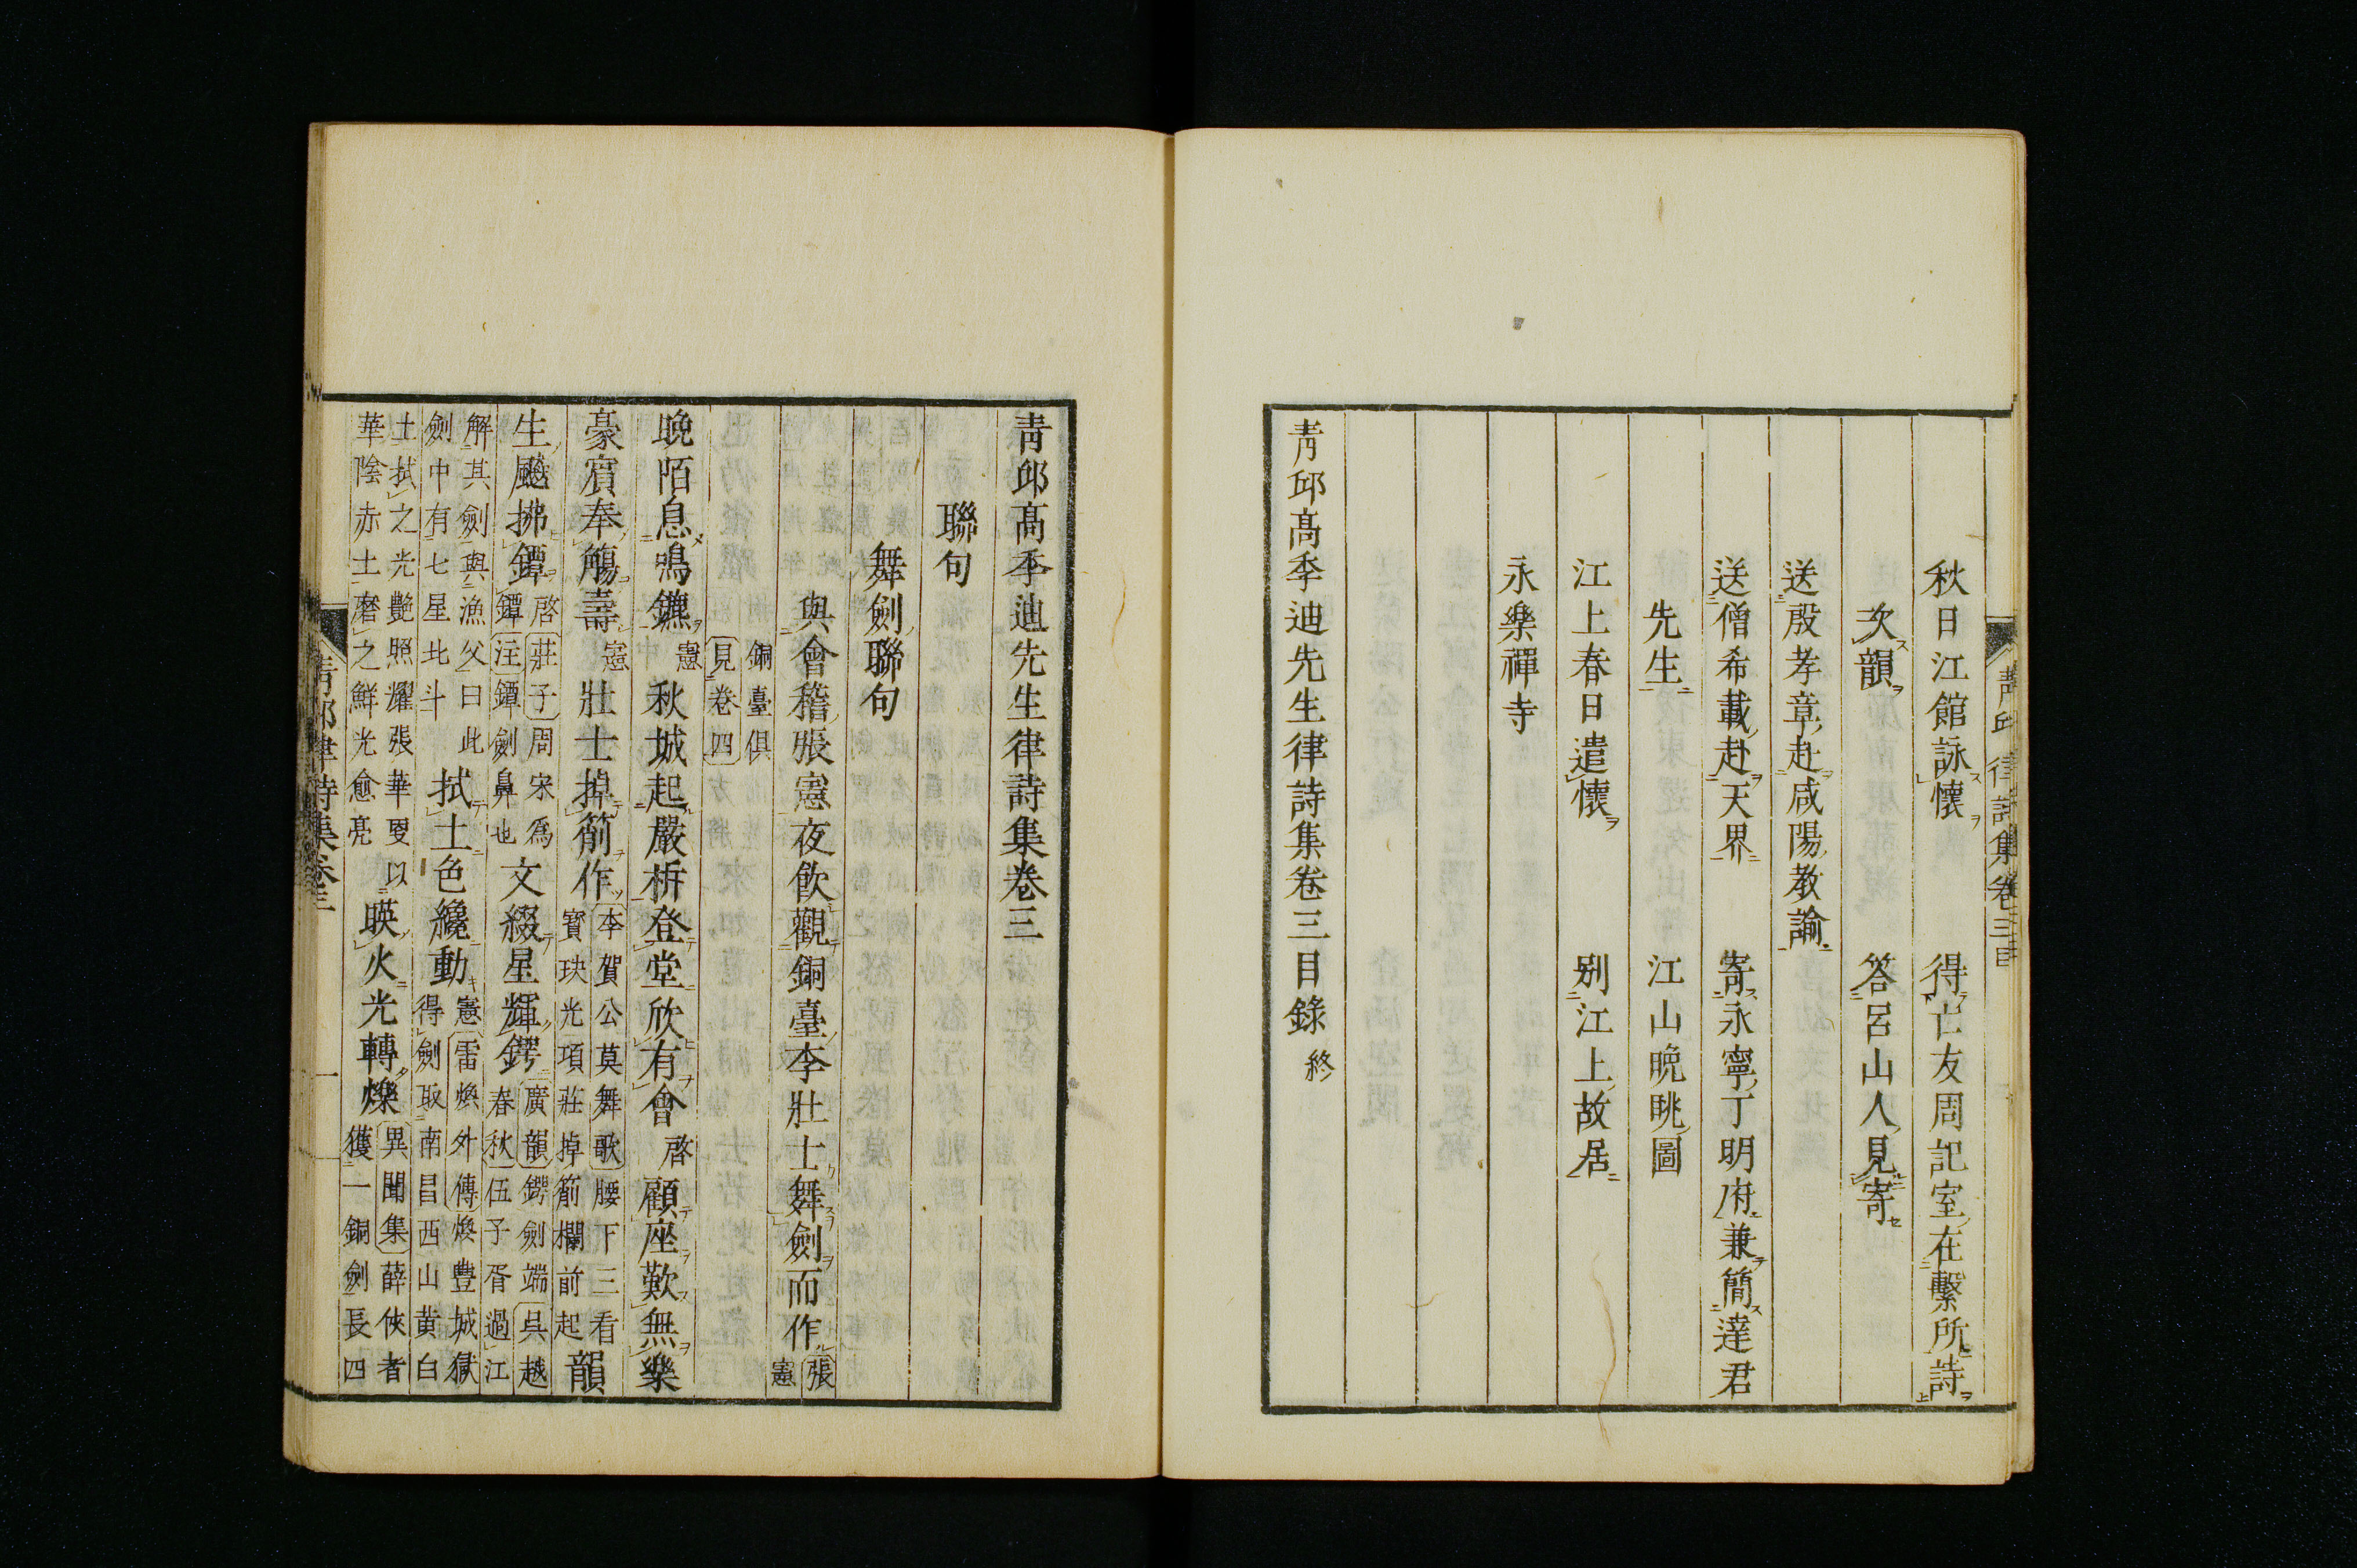 秋日江館詠懷　得亡友周記室在繫所詩
次韻　答呂山人見寄
送殷孝章赴咸陽教諭
送僧希載赴天界　寄永寧丁明府兼簡達君
先生　江山晩眺圖
江上春日遣懷　別江上故居
永樂禪寺
靑邱高季迪先生律詩集卷三目錄終
靑邱高季迪先生律詩集卷三
聯句
舞劍聯句
與會稽張憲夜飲觀銅臺李壯士舞劍而作張憲
銅臺俱見卷四
晩陌息鳴鑣憲秋城起嚴柝登堂欣有會啓顧座歎無樂
豪賓奉觴壽憲壯士掉箾作李賀公莫舞歌腰下三看寶玦光項莊掉箾欄前起韻
生颷拂鐔啓莊子周宋爲鐔注鐔劍鼻也文綴星輝鍔廣韻鍔劍端吳越春秋伍子胥過江
解其劍與漁父曰此劍中有七星北斗拭土色纔動憲雷煥外傳煥豐城獄得劍取南昌西山黃白
土拭之光艷照耀張華更以華陰赤土磨之鮮光愈亮暎火光轉爍異聞集薛俠者獲一銅劍長四